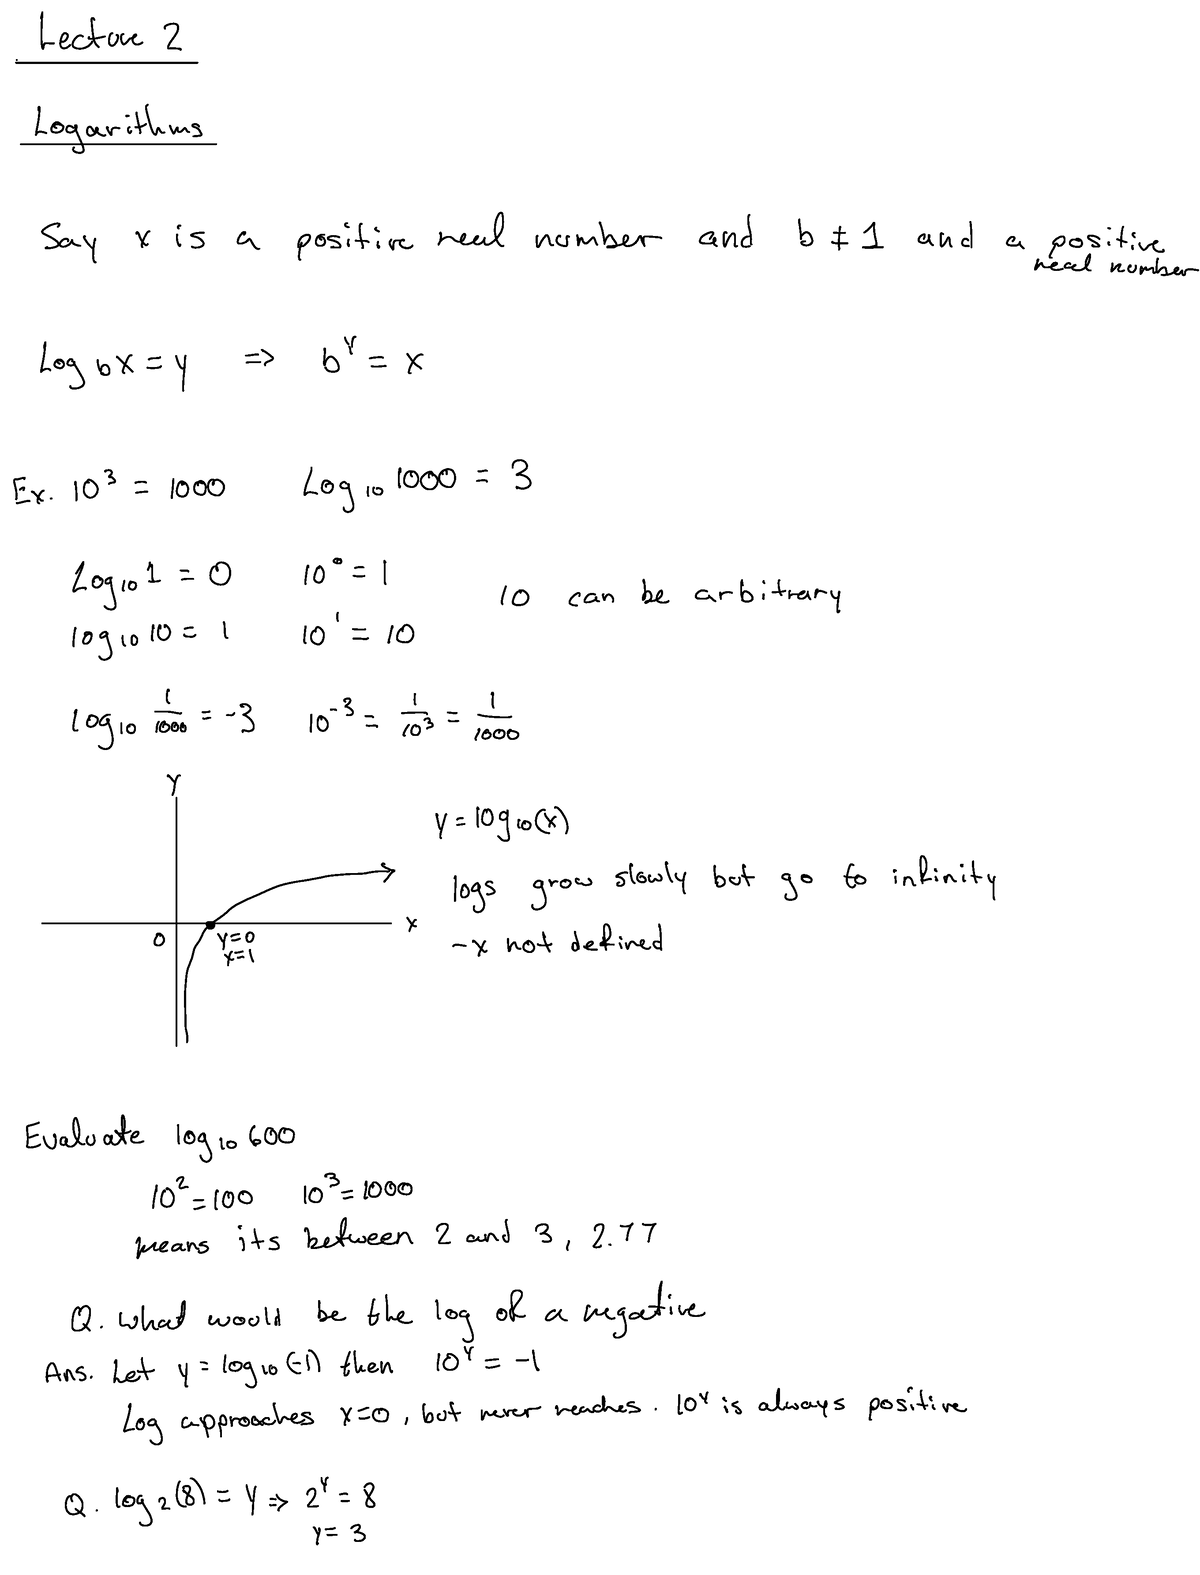 Lecture 2
Logarithms
Say x is a positive real number and b ≠ 1 and a positive real number
Log b x = y => b^y = x
Ex. 10^3 = 1000 Log 10 1000 = 3
Log 10 1 = 0 10^0 = 1
10 can be arbitrary
log 10 10 = 1 10^1 = 10
log 10 1/1000 = -3 10^-3 = 1/10^3 = 1/1000
Y
y = log 10 (x)
logs grow slowly but go to infinity
x
0
y=0
x=1
-x not defined
Evaluate log 10 600
10^2 = 100 10^3 = 1000
means its between 2 and 3, 2.77
Q. what would be the log of a negative
Ans. Let y = log 10 (-1) then 10^y = -1
Log approaches x=0, but never reaches. 10^y is always positive
Q. log 2 (8) = y => 2^y = 8
y = 3